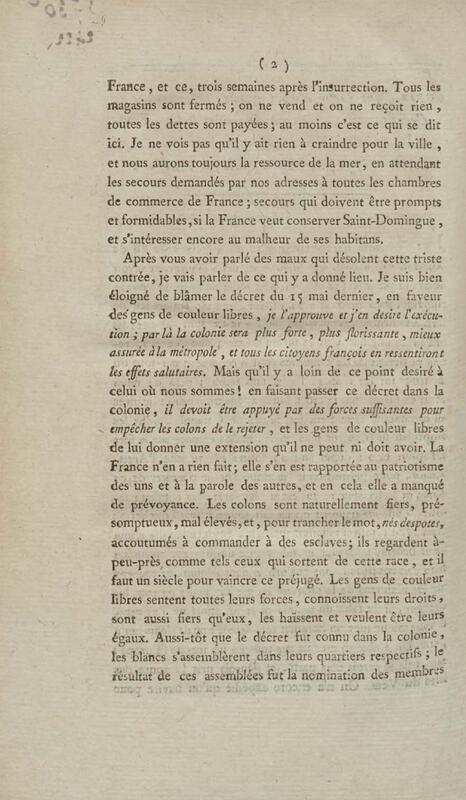 ( 2 )
France, et ce, trois semaines après l'insurrection. Tous les
magasins sont fermés ; on ne vend et on ne reçoit rien,
toutes les dettes sont payées ; au moins c'est ce qui se dit
ici. Je ne vois pas qu'il y ait rien à craindre pour la ville,
et nous aurons toujours la ressource de la mer, en attendant
les secours demandés par nos adresses à toutes les chambres
de commerce de France ; secours qui doivent être prompts
et formidables, si la France veut conserver Saint-Domingue,
et s'intéresser encore au malheur de ses habitans.
Après vous avoir parlé des maux qui désolent cette triste
contrée, je vais parler de ce qui y a donné lieu. Je suis bien
éloigné de blâmer le décret du 15 mai dernier, en faveur
des gens de couleur libres, je l'approuve et j'en desire l'exécu-
tion ; par là la colonie sera plus forte, plus florissante, mieux
assurée à la métropole, et tous les citoyens françois en ressentiront
les effets salutaires. Mais qu'il y a loin de ce point desiré à
celui où nous sommes ! en faisant passer ce décret dans la
colonie, il devoit être appuyé par des forces suffisantes pour
empêcher les colons de le rejeter, et les gens de couleur libres
de lui donner une extension qu'il ne peut ni doit avoir. La
France n'en a rien fait ; elle s'en est rapportée au patriotisme
des uns et à la parole des autres, et en cela elle a manqué
de prévoyance. Les colons sont naturellement fiers, pré-
somptueux, mal élevés, et, pour trancher le mot, nés despotes,
accoutumés à commander à des esclaves ; ils regardent à-
peu-près comme tels ceux qui sortent de cette race, et il
faut un siècle pour vaincre ce préjugé. Les gens de couleur
libres sentent toutes leurs forces, connoissent leurs droits,
sont aussi fiers qu'eux, les haïssent et veulent être leurs
égaux. Aussi-tôt que le décret fut connu dans la colonie,
les blancs s'assemblèrent dans leurs quartiers respectifs ; le
résultat de ces assemblées fut la nomination des membres